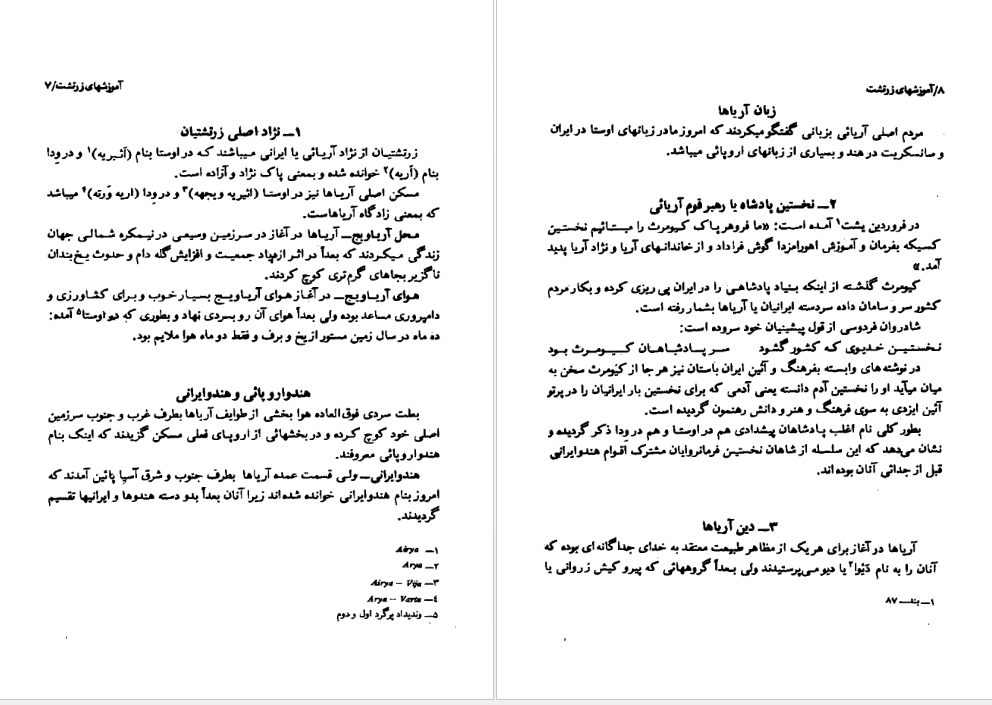 آموزشهای زرتشت/۷
۱ــ نژاد اصلی زرتشتیان
زرتشتیان از نژاد آریائی یا ایرانی میباشند که در اوستا بنام (ائیریه)۱ و در ودا
بنام (آریه)۲ خوانده شده و بمعنی پاک نژاد و آزاده است.
مسکن اصلی آریاها نیز در اوستا (ائیریه ویجهه)۳ و در ودا (اریه وَرته)۴ میباشد
که بمعنی زادگاه آریاهاست.
محل آریاویج‌ــ آریاها در آغاز در سرزمین وسیعی در نیمکره شمالی جهان
زندگی میکردند که بعداً در اثر ازدیاد جمعیت و افزایش گله دام و حدوث یخ‌بندان
ناگزیر بجاهای گرم‌تری کوچ کردند.
هوای آریاویج‌ــ در آغاز هوای آریاویج بسیار خوب و برای کشاورزی و
دامپروری مساعد بوده ولی بعداً هوای آن رو بسردی نهاد و بطوری که در اوستا۵ آمده:
ده ماه در سال زمین مستور از یخ و برف و فقط دو ماه هوا ملایم بود.
هندواروپائی و هندوایرانی
بعلت سردی فوق‌العاده هوا بخشی از طوایف آریاها بطرف غرب و جنوب سرزمین
اصلی خود کوچ کرده و در بخشهائی از اروپای فعلی مسکن گزیدند که اینک بنام
هندواروپائی معروفند.
هندوایرانی‌ــ ولی قسمت عمده آریاها بطرف جنوب و شرق آسیا پائین آمدند که
امروز بنام هندوایرانی خوانده شده‌اند زیرا آنان بعداً بدو دسته هندوها و ایرانیها تقسیم
گردیدند.
۱ــ Airya
۲ــ Arya
۳ــ Airya – Vija
۴ــ Arya – Varta
۵ــ وندیداد پرگرد اول و دوم
۸/آموزشهای زرتشت
زبان آریاها
مردم اصلی آریائی بزبانی گفتگو میکردند که امروز مادر زبانهای اوستا در ایران
و سانسکریت در هند و بسیاری از زبانهای اروپائی میباشد.
۲ــ نخستین پادشاه یا رهبر قوم آریائی
در فروردین یشت۱ آمده است: «ما فروهر پاک کیومرث را میستائیم نخستین
کسیکه بفرمان و آموزش اهورامزدا گوش فراداد و از خاندانهای آریا و نژاد آریا پدید
آمد.»
کیومرث گذشته از اینکه بنیاد پادشاهی را در ایران پی ریزی کرده و بکار مردم
کشور سر و سامان داده سردسته ایرانیان یا آریاها بشمار رفته است.
شادروان فردوسی از قول پیشینیان خود سروده است:
نخستین خدیوی که کشور گشود سر پادشاهان کیومرث بود
در نوشته‌های وابسته بفرهنگ و آئین ایران باستان نیز هر جا از کیومرث سخن به
میان میآید او را نخستین آدم دانسته یعنی آدمی که برای نخستین بار ایرانیان را در پرتو
آئین ایزدی به سوی فرهنگ و هنر و دانش رهنمون گردیده است.
بطور کلی نام اغلب پادشاهان پیشدادی هم در اوستا و هم در ودا ذکر گردیده و
نشان می‌دهد که این سلسله از شاهان نخستین فرمانروایان مشترک اقوام هندوایرانی
قبل از جدائی آنان بوده اند.
۳ــ دین آریاها
آریاها در آغاز برای هر یک از مظاهر طبیعت معتقد به خدای جداگانه‌ای بوده که
آنان را به نام دَئِوا۲ یا دیو می‌پرستیدند ولی بعداً گروههائی که پیرو کیش زروانی یا
۱ــ یشت ــ ۸۷